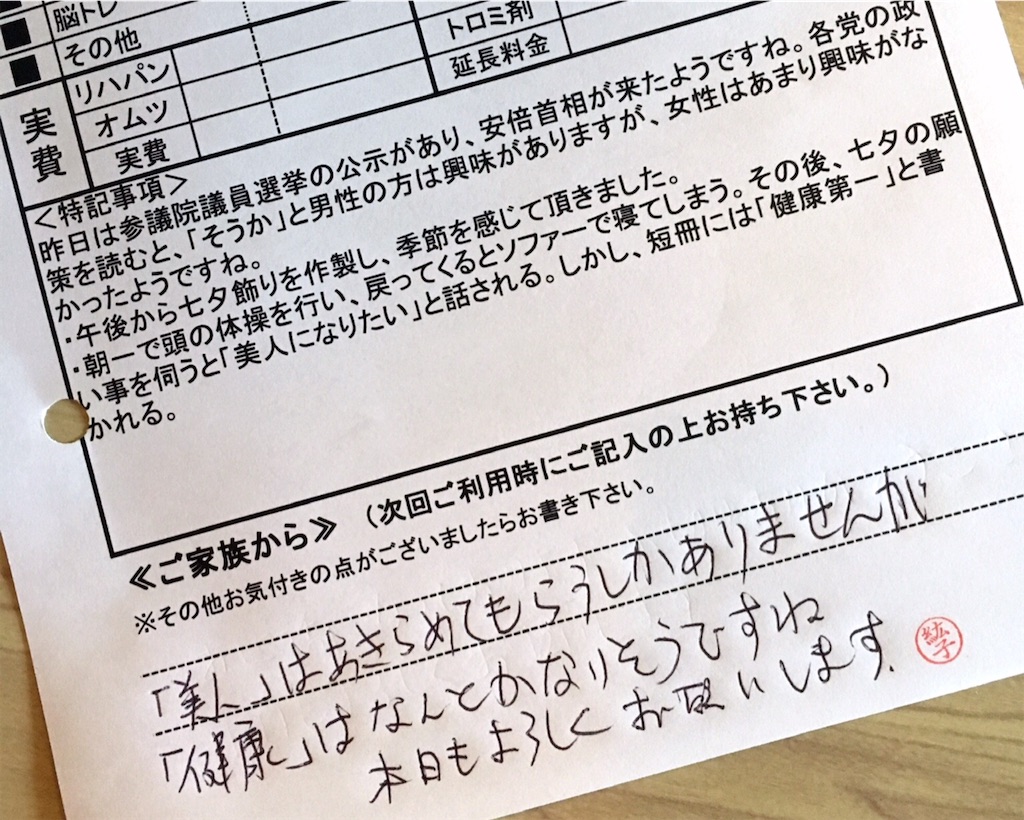 脳トレ
その他
トロミ剤
延長料金
実費
リハパン
オムツ
実費
＜特記事項＞
昨日は参議院議員選挙の公示があり、安倍首相が来たようですね。各党の政
策を読むと、「そうか」と男性の方は興味がありますが、女性はあまり興味がな
かったようですね。
・午後から七夕飾りを作製し、季節を感じて頂きました。
・朝一で頭の体操を行い、戻ってくるとソファーで寝てしまう。その後、七夕の願
い事を伺うと「美人になりたい」と話される。しかし、短冊には「健康第一」と書
かれる。
≪ご家族から≫ （次回ご利用時にご記入の上お持ち下さい。）
※その他お気付きの点がございましたらお書き下さい。
「美人」はあきらめてもらうしかありませんが
「健康」はなんとかなりそうですね
本日もよろしくお願いします.
紘子